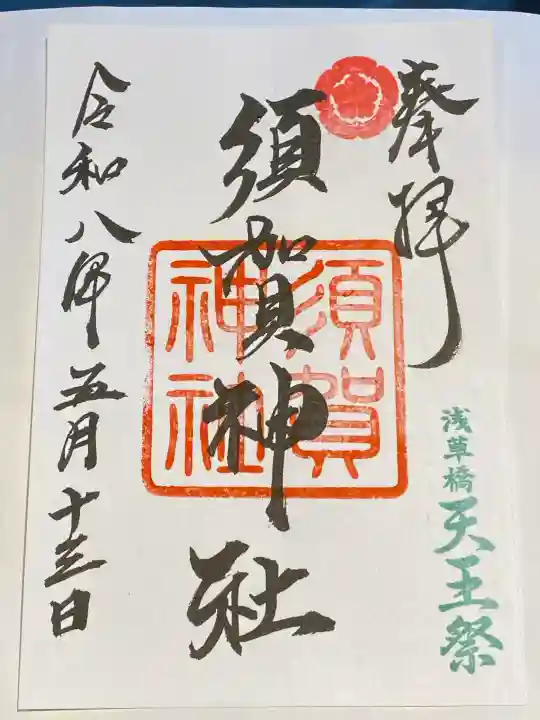 奉拝
浅草橋 天王祭
須賀神社
須賀
神社
令和八年五月十三日